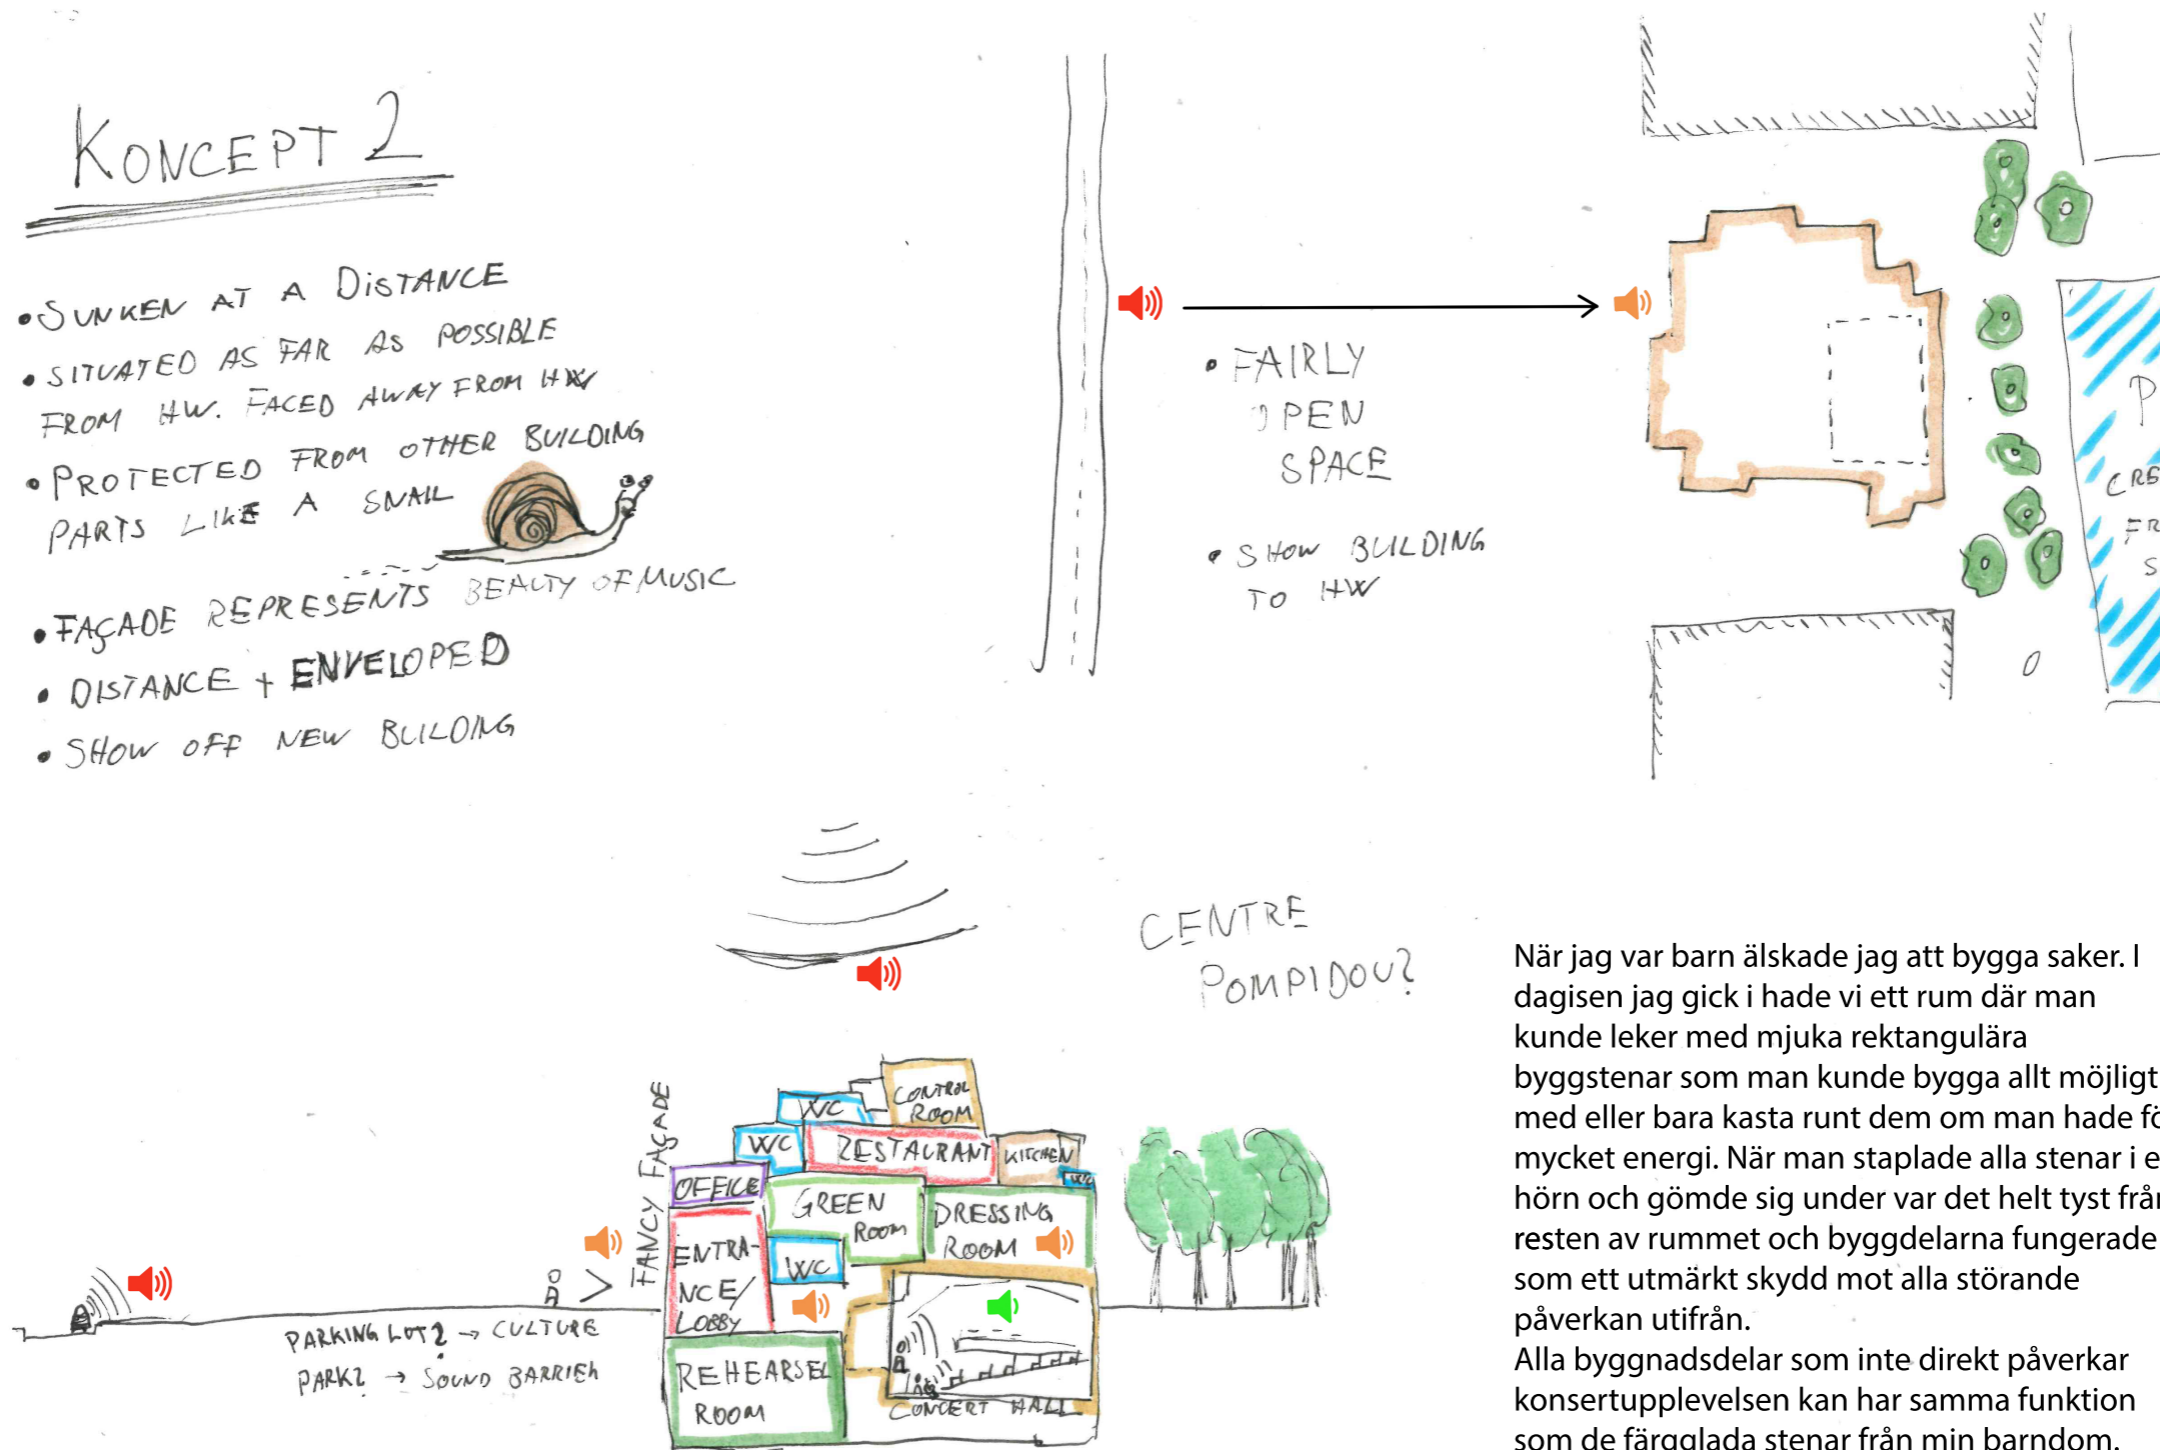 KONCEPT 2
• SUNKEN AT A DISTANCE
• SITUATED AS FAR AS POSSIBLE
FROM HW. FACED AWAY FROM HW
• PROTECTED FROM OTHER BUILDING
PARTS LIKE A SNAIL
• FAÇADE REPRESENTS BEAUTY OF MUSIC
• DISTANCE + ENVELOPED
• SHOW OFF NEW BUILDING
• FAIRLY
OPEN
SPACE
• SHOW BUILDING
TO HW
P
CRE
FR
S
CENTRE
POMPIDOU?
FANCY FAÇADE
WC
CONTROL
ROOM
WC
RESTAURANT
KITCHEN
WC
OFFICE
GREEN
ROOM
DRESSING
ROOM
ENTRA-
NCE/
LOBBY
WC
REHEARSEL
ROOM
CONCERT HALL
PARKING LOT? → CULTURE
PARK? → SOUND BARRIER
När jag var barn älskade jag att bygga saker. I
dagisen jag gick i hade vi ett rum där man
kunde leker med mjuka rektangulära
byggstenar som man kunde bygga allt möjligt
med eller bara kasta runt dem om man hade fö
mycket energi. När man staplade alla stenar i e
hörn och gömde sig under var det helt tyst från
resten av rummet och byggdelarna fungerade
som ett utmärkt skydd mot alla störande
påverkan utifrån.
Alla byggnadsdelar som inte direkt påverkar
konsertupplevelsen kan har samma funktion
som de färgglada stenar från min barndom.